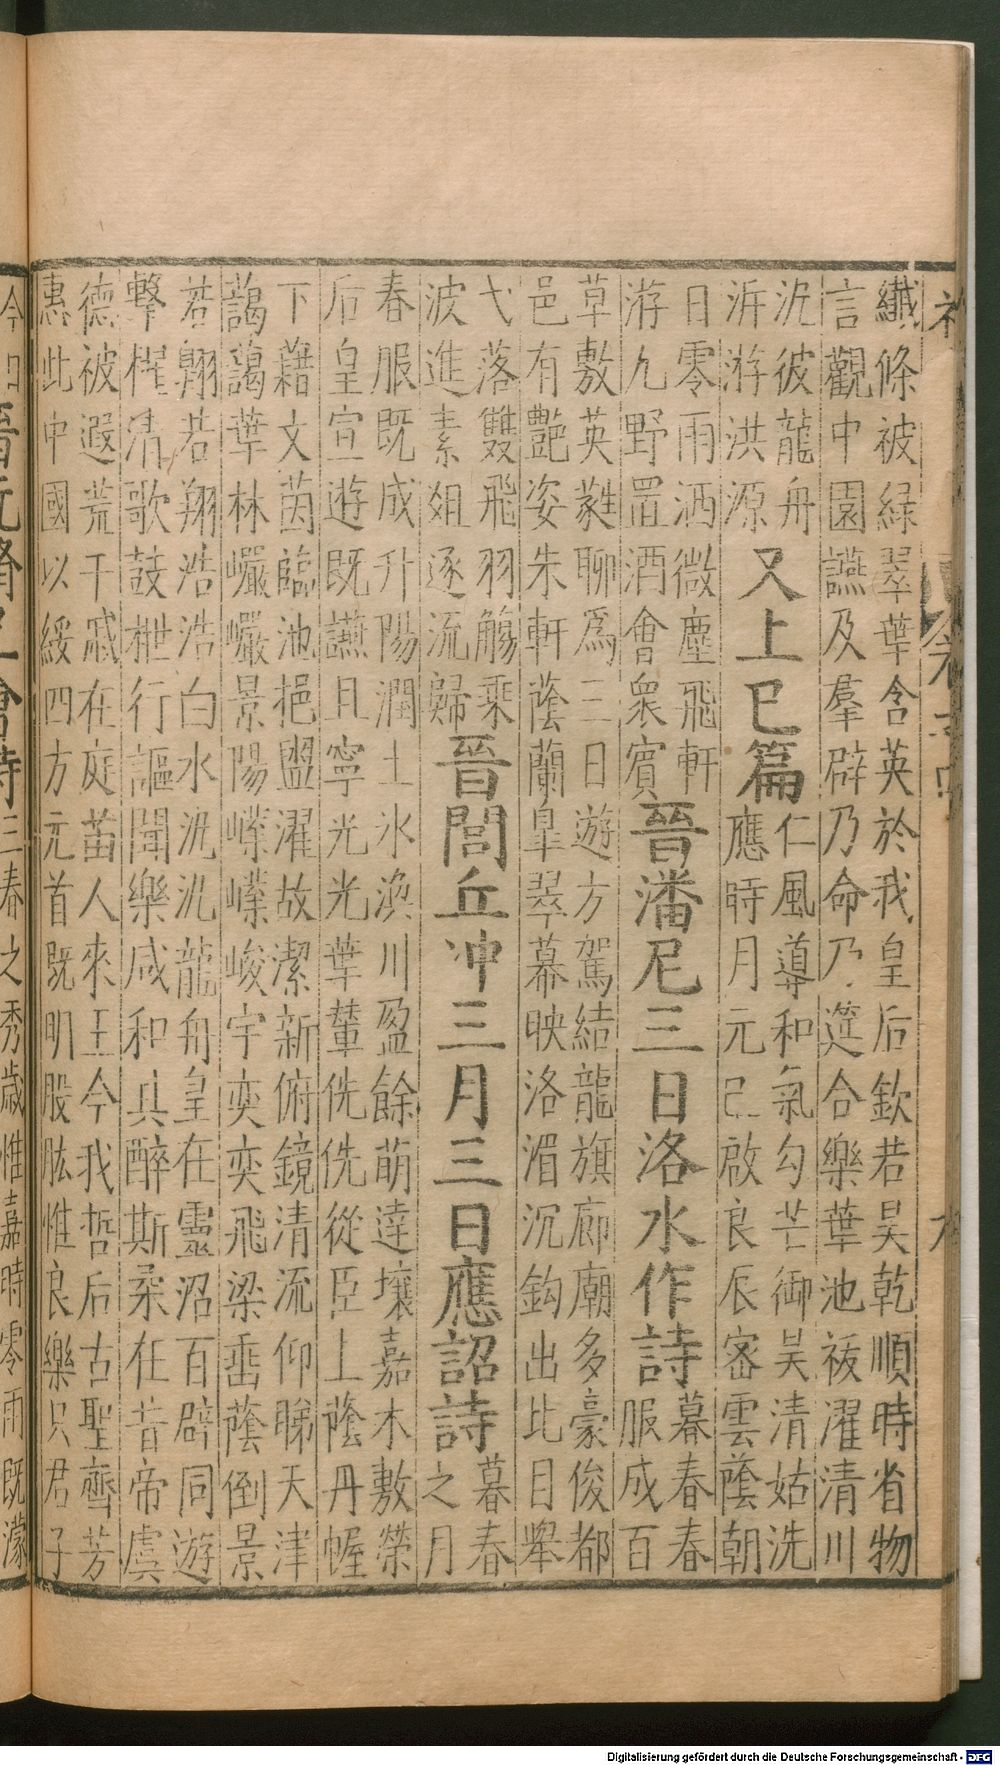 纖條被綠翠華含英於我皇后欽若昊乾順時省物
言觀中園讌及羣辟乃命乃筵合樂華池祓濯清川
汎彼龍舟
泝游洪源
又上巳篇
仁風導和氣勾芒御昊清姑洗
應時月元巳啟良辰密雲蔭朝
日零雨洒微塵飛軒
游九野置酒會衆賓
晉潘尼三日洛水作詩
暮春春
服成百
草敷英蕤聊爲三日遊方駕結龍旗廊廟多豪俊都
邑有艷姿朱軒蔭蘭皐翠幕映洛湄沉鈎出比目舉
弋落雙飛羽觴乘
波進素俎逐流歸
晉閭丘冲三月三日應詔詩
暮春
之月
春服既成升陽潤土氷渙川盈餘萌達壤嘉木敷榮
后皇宣遊既讌且寧光光華輦侁侁從臣上蔭丹幄
下藉文茵臨池挹盥濯故潔新俯鏡清流仰睇天津
藹藹華林巖巖景陽嶫嶫峻宇奕奕飛梁垂蔭倒景
若翺若翔浩浩白水汎汎龍舟皇在靈沼百辟同遊
擊棹清歌鼓枻行謳聞樂咸和具醉斯柔在昔帝虞
德被遐荒干戚在庭苗人來王今我哲后古聖齊芳
惠此中國以綏四方元首既明股肱惟良樂只君子
三春之秀歲惟嘉時零雨既濛
Digitalisierung gefördert durch die Deutsche Forschungsgemeinschaft - DFG